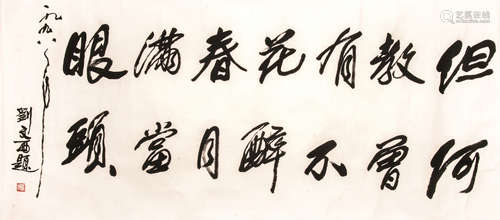 但教有花春滿眼
何曾不醉月當頭
一九九八年
劉文西題
艺狐在线